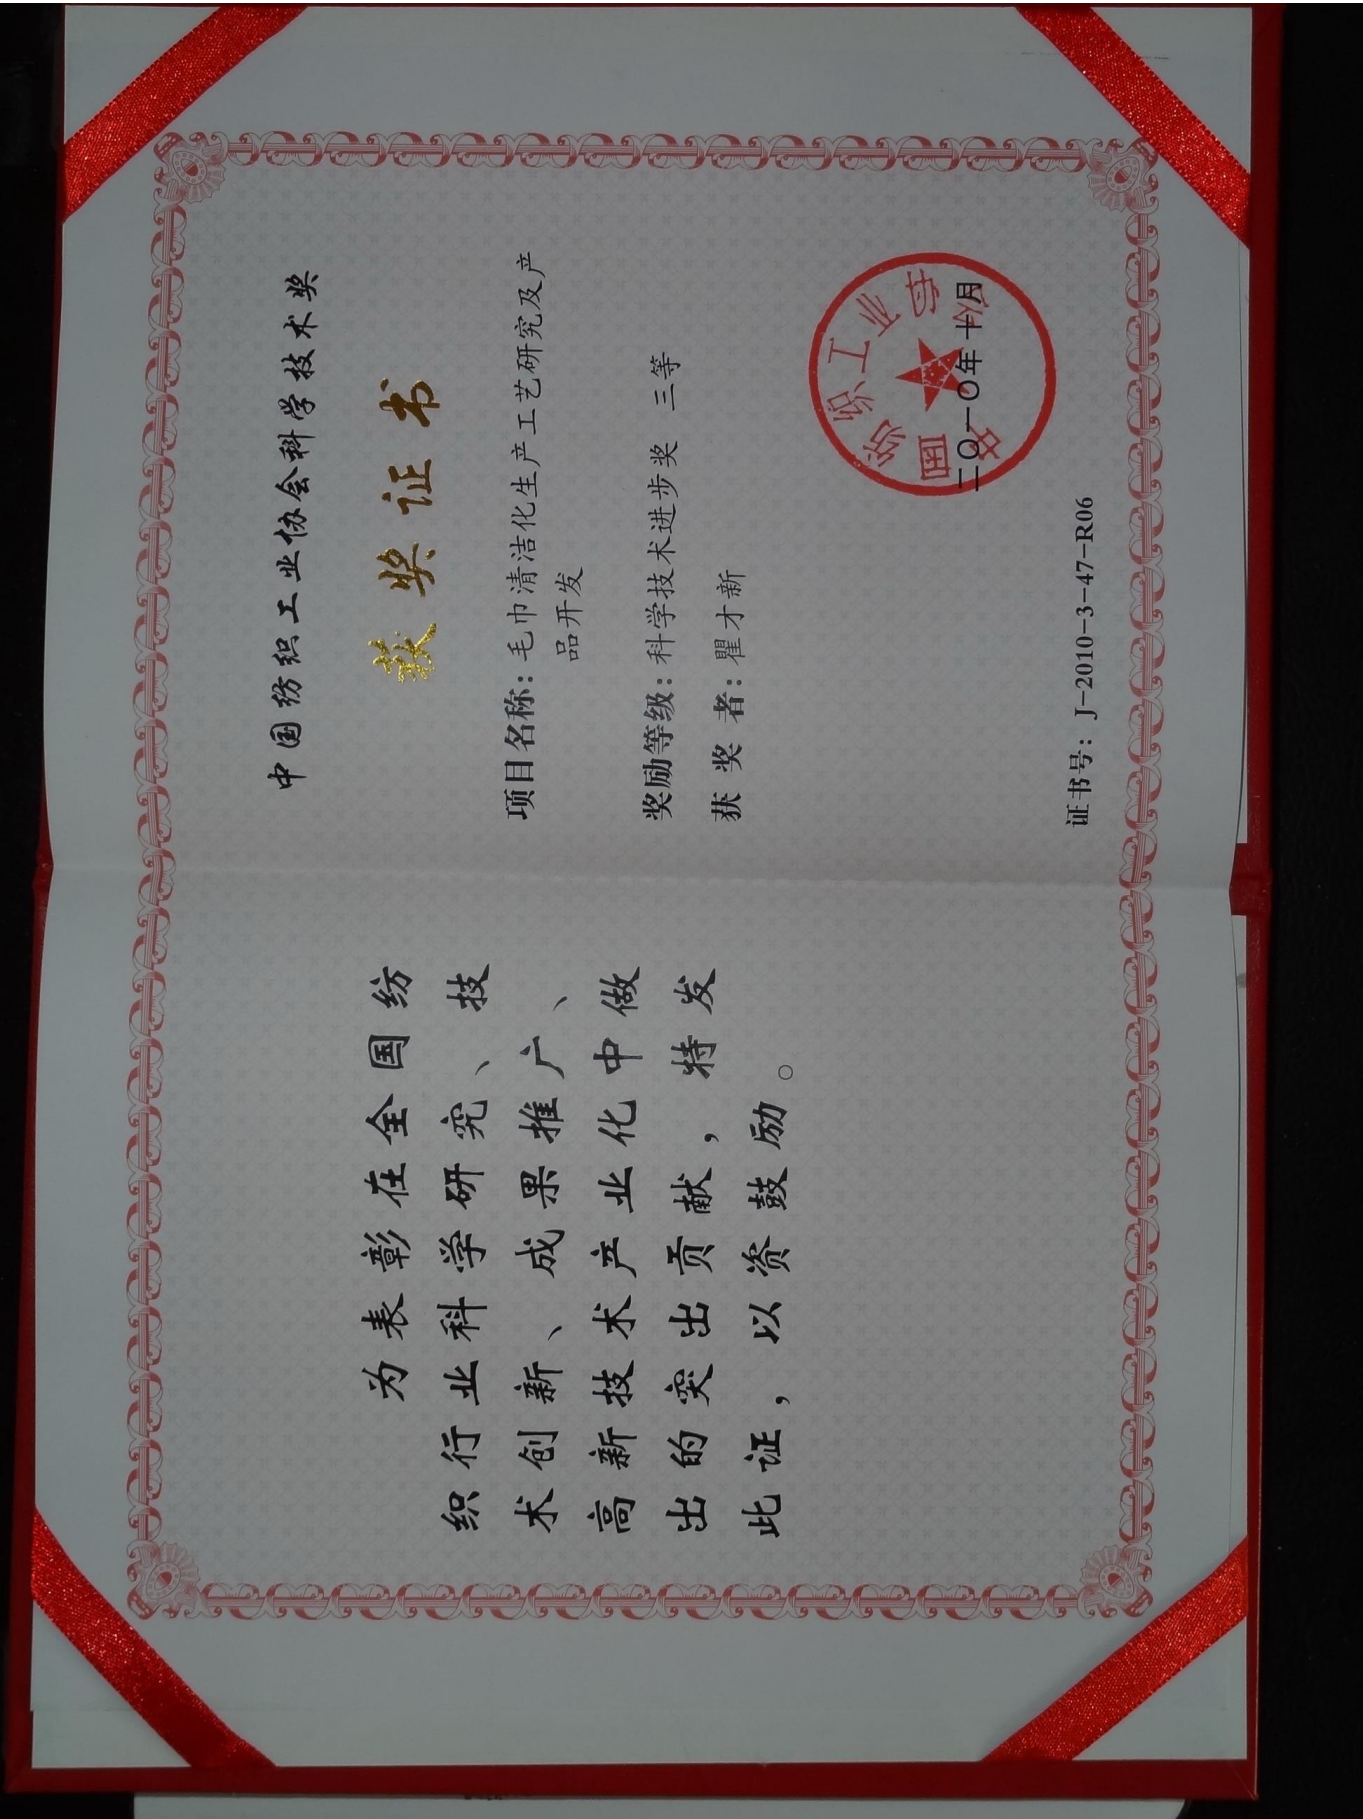 为表彰在全国纺
织行业科学研究、技
术创新、成果推广、
高新技术产业化中做
出的突出贡献，特发
此证，以资鼓励。
中国纺织工业协会科学技术奖
获奖证书
项目名称：毛巾清洁化生产工艺研究及产
品开发
奖励等级：科学技术进步奖 三等
获 奖 者：瞿才新
中国纺织工业协会
二〇一〇年十月
证书号：J-2010-3-47-R06